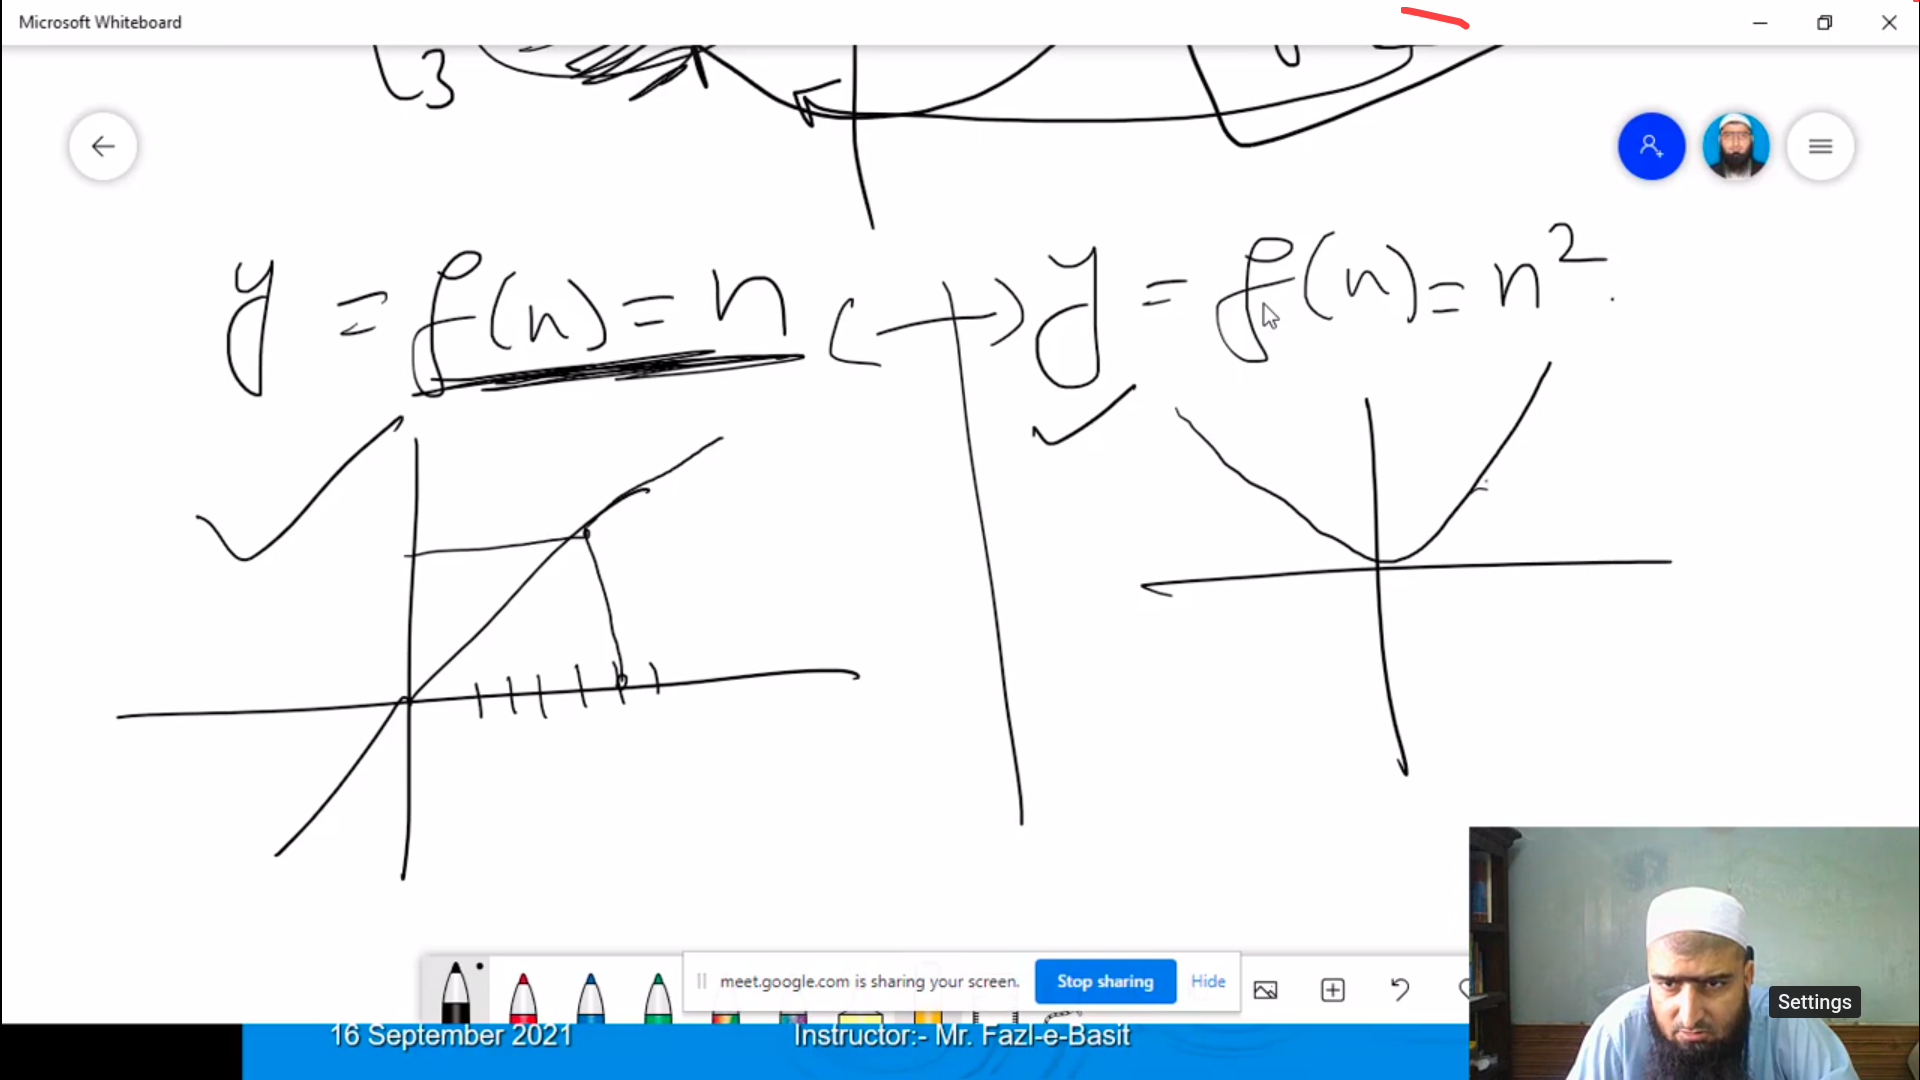 Microsoft Whiteboard
3
y = f(n) = n
y = f(n) = n²
meet.google.com is sharing your screen. Stop sharing Hide
Settings
16 September 2021 Instructor:- Mr. Fazl-e-Basit